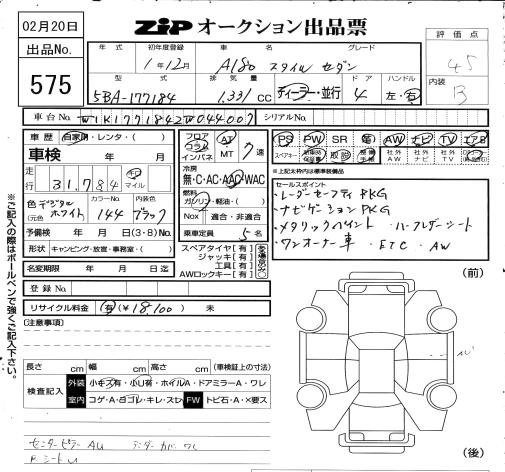 02月20日
ZiP オークション出品票
出品No.
575
評価点
4.5
内装
B
年式 初年度登録 車名 グレード
1年12月 A180 スタイル セダン
型式 排気量 ドア ハンドル
5BA-177184 1.33L CC ディーラー・並行 4 左・右
車台No. W1K1771842W044007 シリアルNo.
車歴 自家用・レンタ・( )
車検 年 月
走行 31,784 キロ マイル
色 デジタルホワイト カラーNo. 144 内装色 ブラック
(元色)
予備検 年 月 日(3・8)No.
形状 キャンピング・放宣・事務室・( )
名変期限 年 月 日迄
登録No.
リサイクル料金 有(¥18,100) 未
フロア コラム インパネ AT MT 7速
冷房 無・C・AC・AAC・WAC
燃料 ガソリン・軽油・( )
Nox 適合・非適合
乗車定員 5名
スペアタイヤ【有】
ジャッキ【有】
工具【有】
AWロックキー【有】
PS PW SR 革 AW ナビ TV エアB
スペアキー 取説 社外AW 社外ナビ 社外TV
※上記未枠内は標準装備品
セールスポイント
・レーダーセーフティPKG
・ナビゲーションPKG
・メタリックペイント ・ハーフレザーシート
・ワンオーナー車 ・ETC ・AW
※ご記入の際はボールペンで強くご記入下さい。
(前)
(後)
【注意事項】
長さ cm 幅 cm 高さ cm (車検証上の寸法)
検査記入 外装 小キズ有・小U有・ホイルA・ドアミラーA・ワレ
室内 コゲ・A・ヨゴレ・キレ・スレ FW トビ石・A・X要ス
センターピラーAU
R.シートU